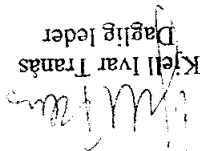 Kjell Ivar Tranås
Daglig leder